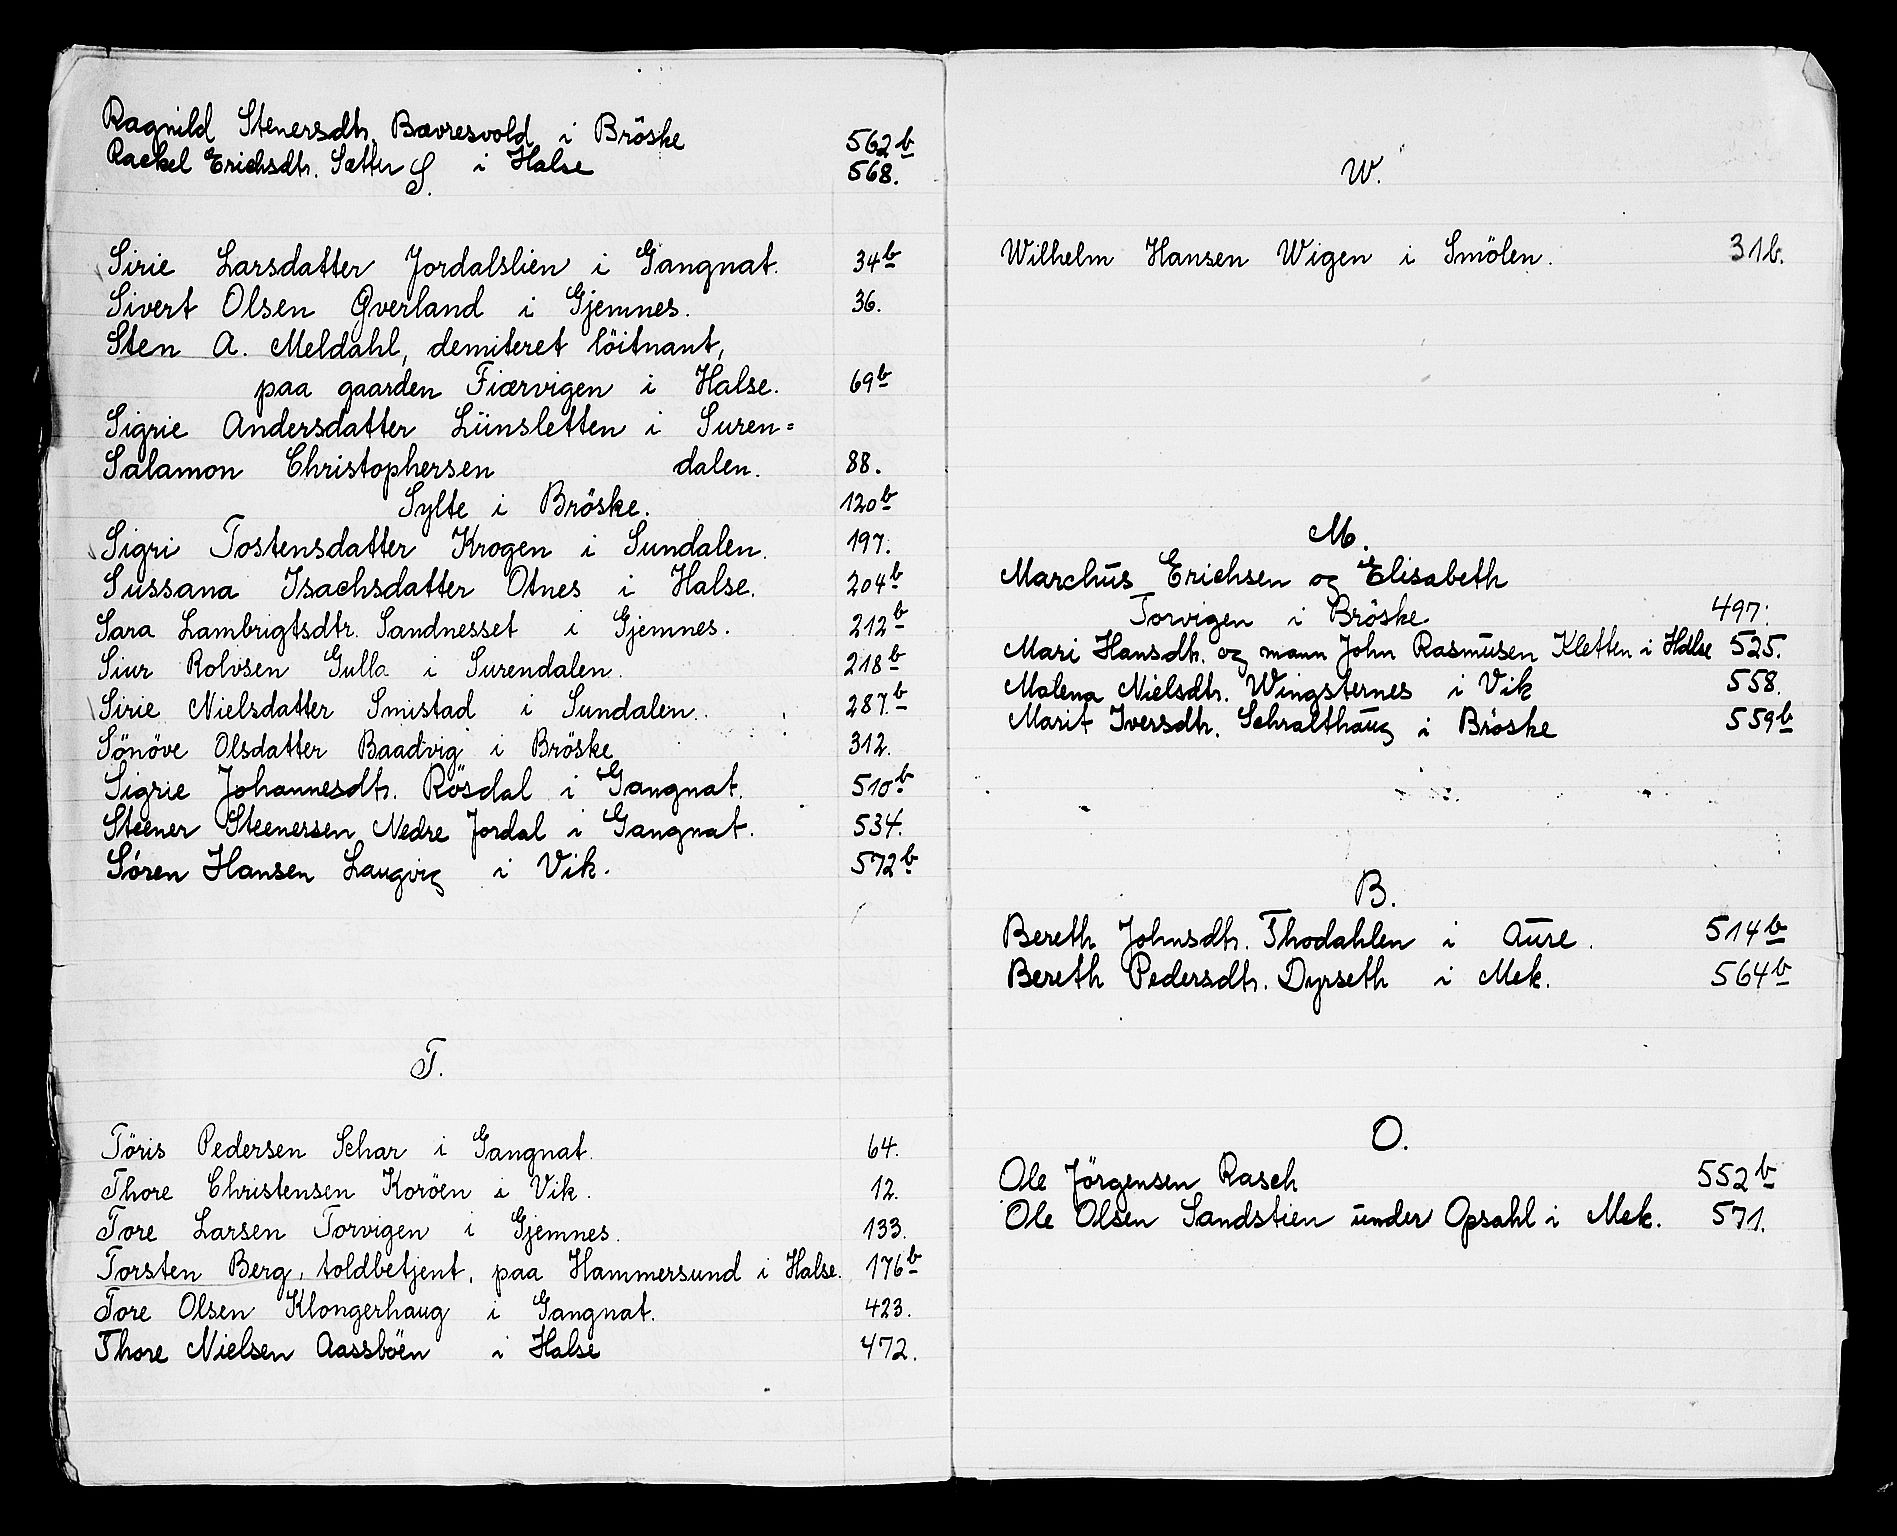 Ragnild Stenersdtr. Bævresvold i Bröske 562b
Rackel Erichsdtr. Sætter i Halse 568.
S.
Sirie Larsdatter Jordalslien i Gangnat. 34b
Sivert Olsen Qverland i Gjemnes. 36.
Sten A. Meldahl, demiteret löitnant,
paa gaarden Fiærvigen i Halse. 69b
Sigrie Andersdatter Lünsletten i Suren=
Salamon Christophersen dalen. 88.
Sylte i Bröske. 120b
Sigri Tostensdatter Krogen i Sundalen. 197.
Sussana Isachsdatter Otnes i Halse. 204b
Sara Lambrigtsdtr. Sandnesset i Gjemnes. 212b
Siur Rolvsen Gulla i Surendalen. 218b
Sirie Nielsdatter Smistad i Sundalen. 287b
Sönöve Olsdatter Baadvig i Bröske 312.
Sigrie Johannesdtr. Rösdal i Gangnat. 510b
Steener Steenersen Nedre Jordal i Gangnat. 534.
Sören Hansen Laugvig i Vik. 572b
T.
Töris Pedersen Schar i Gangnat. 64.
Thore Christensen Koröen i Vik. 12.
Tore Larsen Torvigen i Gjemnes. 133.
Torsten Berg, toldbetjent, paa Hammersund i Halse. 176b
Tore Olsen Klongerhaug i Gangnat. 423.
Thore Nielsen Aassböen i Halse 472.
W.
Wilhelm Hansen Wigen i Smölen. 31b.
M.
Marchus Erichsen og Elisabeth
Torvigen i Bröske 497.
Mari Hansdtr. og mann John Rasmusen Kletten i Halse 525.
Malena Nielsdtr. Wingsternes i Vik 558.
Marit Iversdtr. Schralthaug i Bröske 559b
B.
Bereth Johnsdtr. Thodahlen i Aure. 514b
Bereth Pedersdtr. Dyrseth i Mek. 564b
O.
Ole Jörgensen Rasch 552b
Ole Olsen Sandstien under Opsahl i Mek. 571.